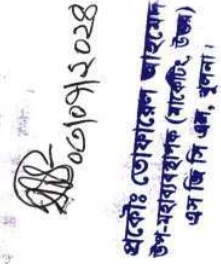 ০৩/০৭/২০২৪
প্রকৌঃ তোফায়েল আহমেদ
উপ-মহাব্যবস্থাপক (মার্কেটিং, উত্তর)
এস জি সি এল, খুলনা।